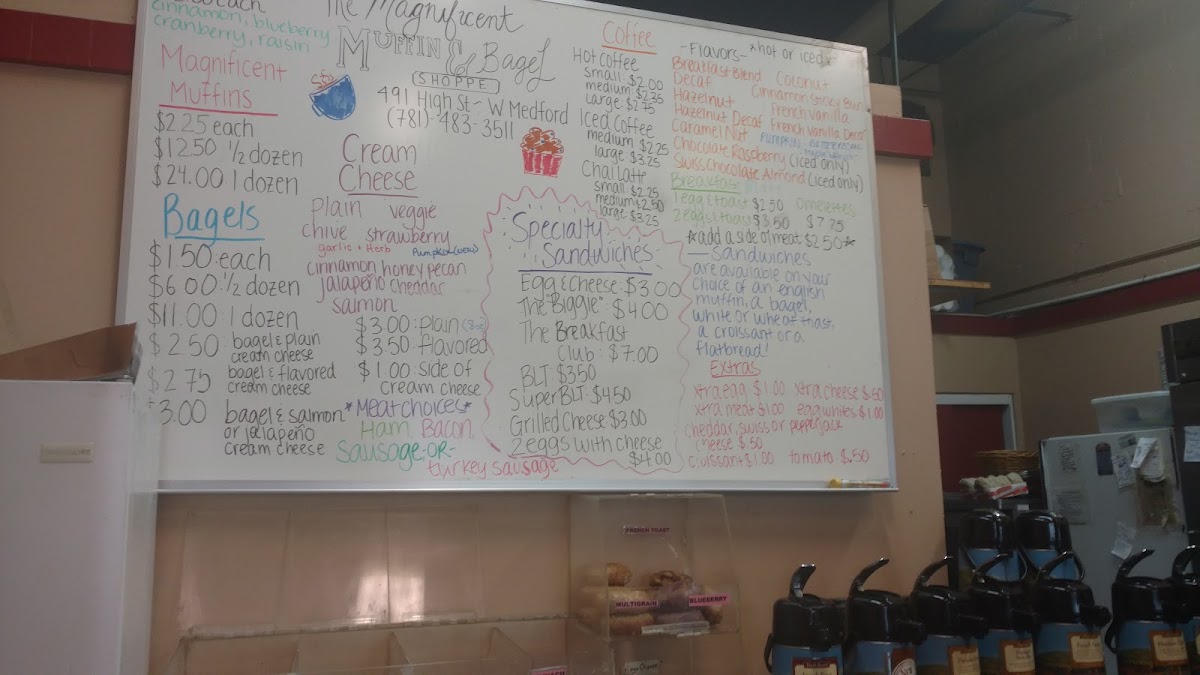 each
cinnamon, blueberry
cranberry, raisin
Magnificent
Muffins
$2.25 each
$12.50 1/2 dozen
$24.00 1 dozen
Bagels
$1.50 each
$6.00 1/2 dozen
$11.00 1 dozen
$2.50 bagel & plain
cream cheese
$2.75 bagel & flavored
cream cheese
3.00 bagel & salmon
or jalapeño
cream cheese
The Magnificent
Muffin & Bagel
SHOPPE
491 High St ~ W Medford
(781)-483-3511
Cream
Cheese
plain veggie
chive strawberry
garlic + herb Pumpkin (new)
cinnamon honey pecan
jalapeño cheddar
salmon
$3.00: plain (8oz)
$3.50: flavored
$1.00: side of
cream cheese
*Meat choices*
Ham, Bacon
Sausage-OR-
turkey sausage
Specialty
Sandwiches
Egg & Cheese: $3.00
The "Biggie": $4.00
The Breakfast
Club: $7.00
BLT $3.50
Super BLT: $4.50
Grilled Cheese $3.00
2 eggs with cheese
$4.00
Coffee
Hot Coffee
small: $2.00
medium: $2.35
large: $2.75
Iced Coffee
medium $2.25
large $3.25
Chai Latte
small $2.25
medium $2.50
large $3.25
-Flavors- *hot or iced*
Breakfast Blend Coconut
Decaf Cinnamon Sticky Bun
Hazelnut French vanilla
Hazelnut Decaf French Vanilla Decaf
Caramel Nut PUMPKIN
Chocolate Raspberry (iced only)
Swiss Chocolate Almond (iced only)
Breakfast
1 egg & toast $2.50 Omelettes
2 eggs & toast $3.50 $7.75
*add a side of meat $2.50*
— Sandwiches
are available on your
choice of an english
muffin, a bagel,
white or wheat toast,
a croissant or a
flatbread!
Extras
xtra egg $1.00 xtra cheese $.50
xtra meat $1.00 egg whites $1.00
cheddar, swiss or pepperjack
cheese $.50
croissant $1.00 tomato $.50
FRENCH TOAST
MULTIGRAIN
BLUEBERRY